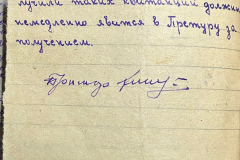 лучили таких квитанций должны
немедленно явится в Претуру за
получением.